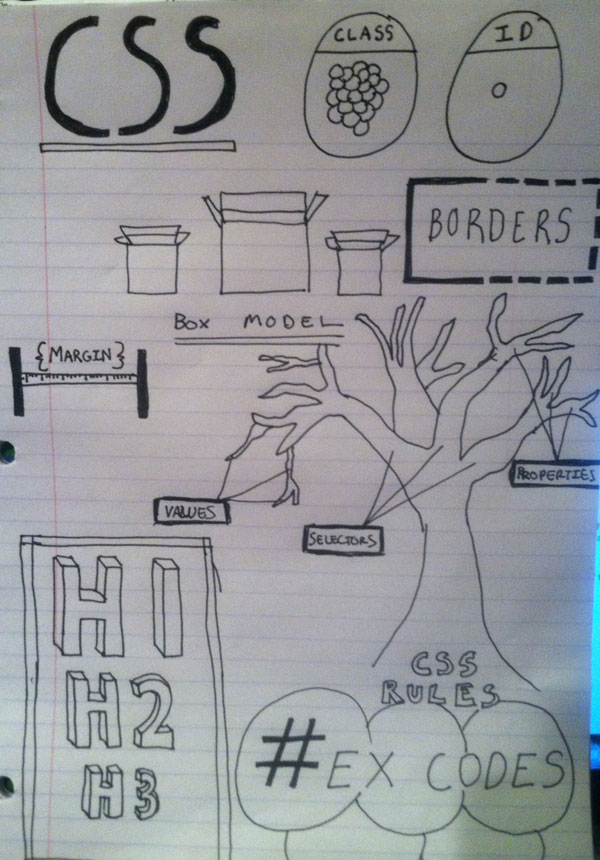 CSS
CLASS
ID
BORDERS
BOX MODEL
{MARGIN}
PROPERTIES
VALUES
SELECTORS
H1
H2
H3
CSS
RULES
#EX CODES